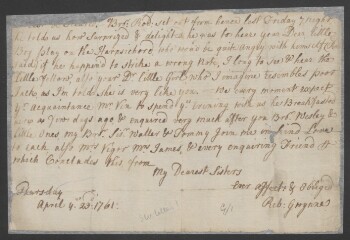 Bror Rod: set out from hence last Friday 7 night
he told us how surprized & delighted he was to hear your Dear little
Boy play on the Harpsicord who would be quite angry with himself
if he happened to strike a wrong Note, I long to see & hear the
little fellow, also your Dr. little Girl who I imagine resembles poor
Jacky as I'm told she is very like you — We every moment expect
acquaintance Mr. to spend ye evening with us he Breakfasted
here a few days ago & enquired very much after you Bror. Wesley &
little Ones my Bror. Sisr. Waller & Tommy join me in kind Love
to each also Mrs Vigor Mrs. James, & every enquiring Friend
which Concludes this from
My Dearest Sisters
Ever affecte & Obliged
Reb: Gwynne
Thursday
April ye 23d. 1761.